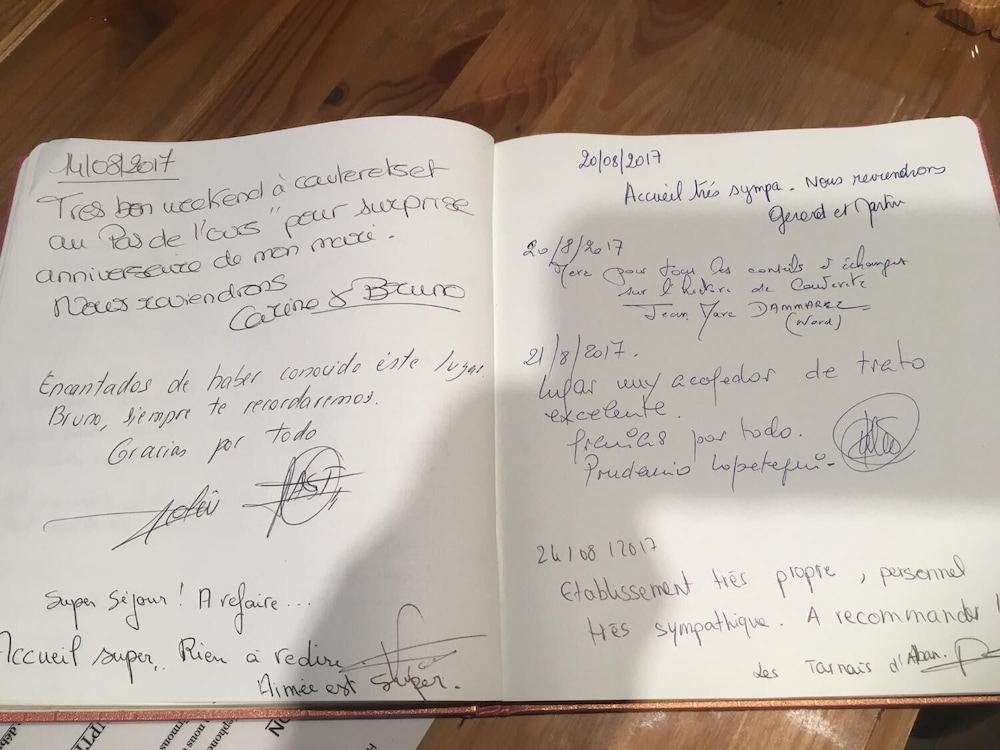 14/08/2017
Tres bon weekend à cauterets et
au "Pas de l'ours" pour surprise
anniversaire de mon mari.
Nous reviendrons
Carine & Bruno
Encantados de haber conocido éste lugar.
Bruno, siempre te recordaremos.
Gracias por todo
Super séjour! A refaire...
Accueil super. Rien à redire
Aimée est super.
20/08/2017
Accueil très sympa. Nous reviendrons
Gerard et Martin
20/8/2017
Merc pour tous les conseils d'échanges
sur l'histoire de Cauterets
Jean Marc DAMMAREZ
(Nord)
21/8/2017.
lugar muy acojedor de trato
excelente.
Gracias por todo.
Prudencio Lopetegui.
24/08/2017
Etablissement très propre, personnel
très sympathique. A recommander !
Les Tarnais d'Alban.